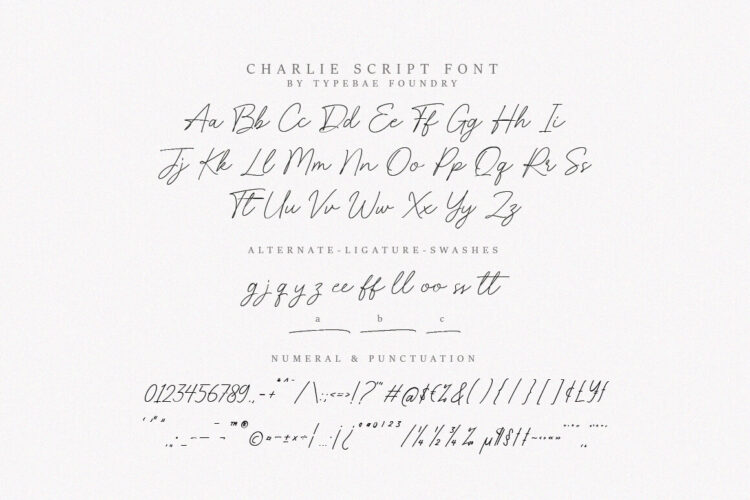 CHARLIE SCRIPT FONT
BY TYPEBAE FOUNDRY
Aa Bb Cc Dd Ee Ff Gg Hh Ii
Jj Kk Ll Mm Nn Oo Pp Qq Rr Ss
Tt Uu Vv Ww Xx Yy Zz
ALTERNATE-LIGATURE-SWASHES
g j q y z ee ff ll oo ss tt
a b c
NUMERAL & PUNCTUATION
0123456789.,-+ ^~ /\:;<=>!?'" #@$€%&(){/}[]¢£¥ƒ
™® ©¤−±×÷¦…¡¿ ºª0123 /¼½¾‰µ¶§†‡